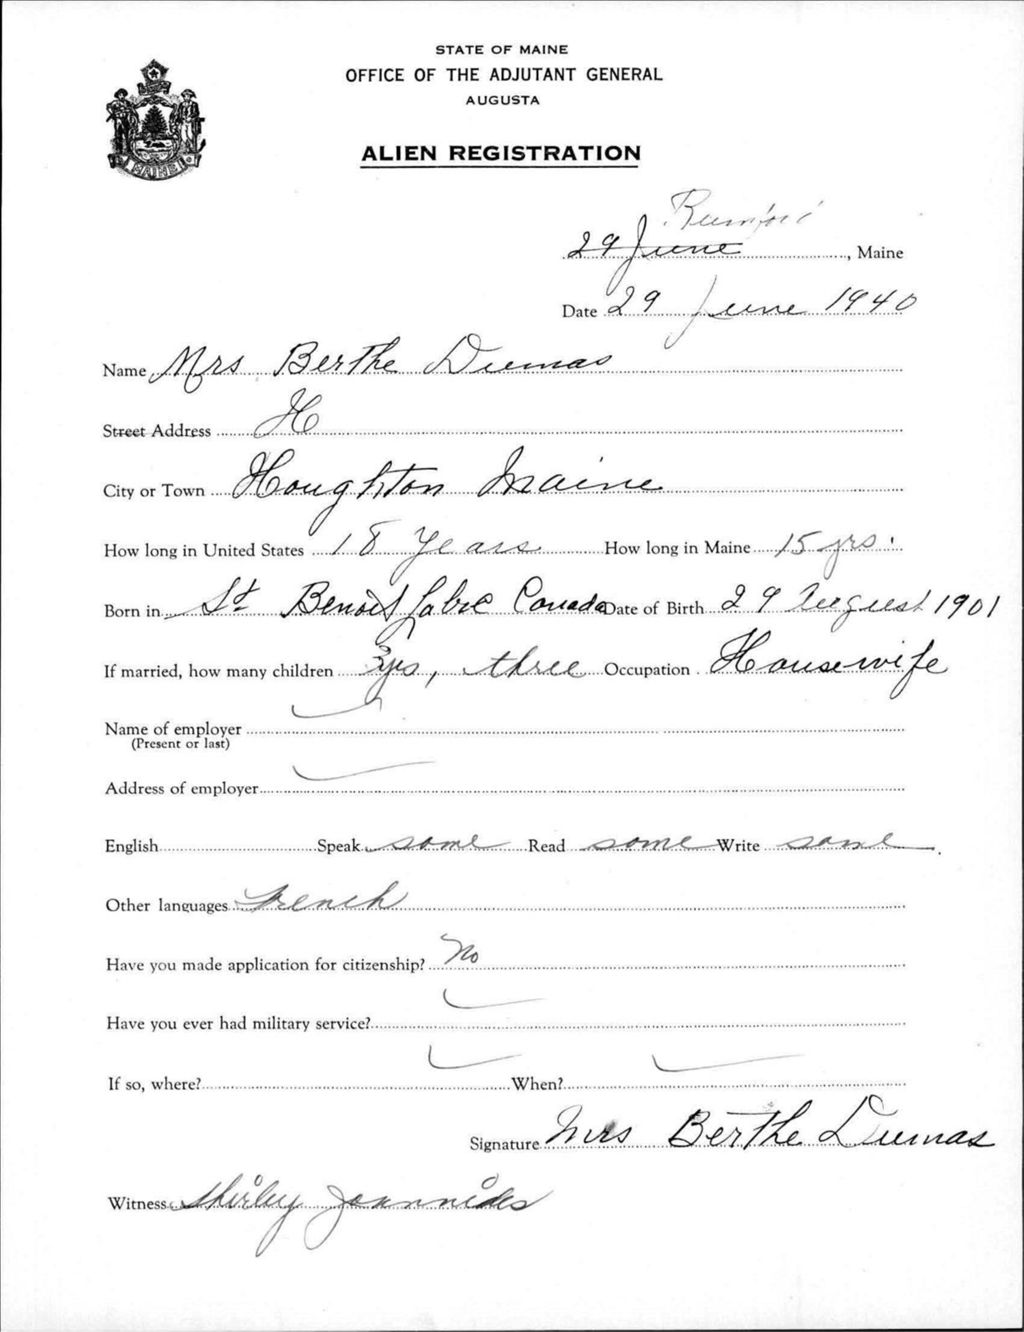 STATE OF MAINE
OFFICE OF THE ADJUTANT GENERAL
AUGUSTA
ALIEN REGISTRATION
MAINE
29 June, Maine
Date 29 June 1940
Name Mrs Berthe Dumas
Street Address H
City or Town Houghton Maine
How long in United States 18 Years How long in Maine 15 yrs.
Born in St Benoit Labre Canada Date of Birth 29 August 1901
If married, how many children yes, three Occupation Housewife
Name of employer
(Present or last)
Address of employer
English Speak some Read some Write some.
Other languages French
Have you made application for citizenship? No
Have you ever had military service?
If so, where? When?
Signature Mrs Berthe Dumas
Witness Shirley Joannides